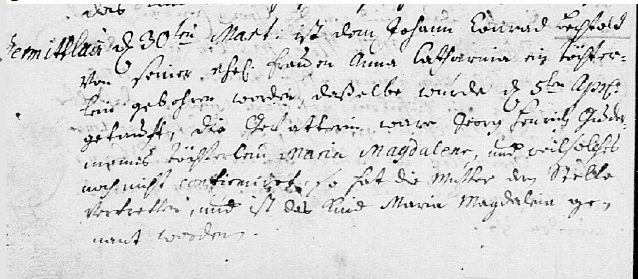 den 30ten Mart. ist dem Johann Conrad Bechtold
von seiner ehel. Frauen Anna Catharina ein Töchter-
lein gebohren worden, daßelbe wurde d 5ten April.
getauft, die Gevatterin ware Georg Henrich
Töchterlein Maria Magdalena, und weil solches
noch nicht confirmiret, so hat die Mutter den Stelle
vertretten, und ist das Kind Maria Magdalein ge-
nant worden.